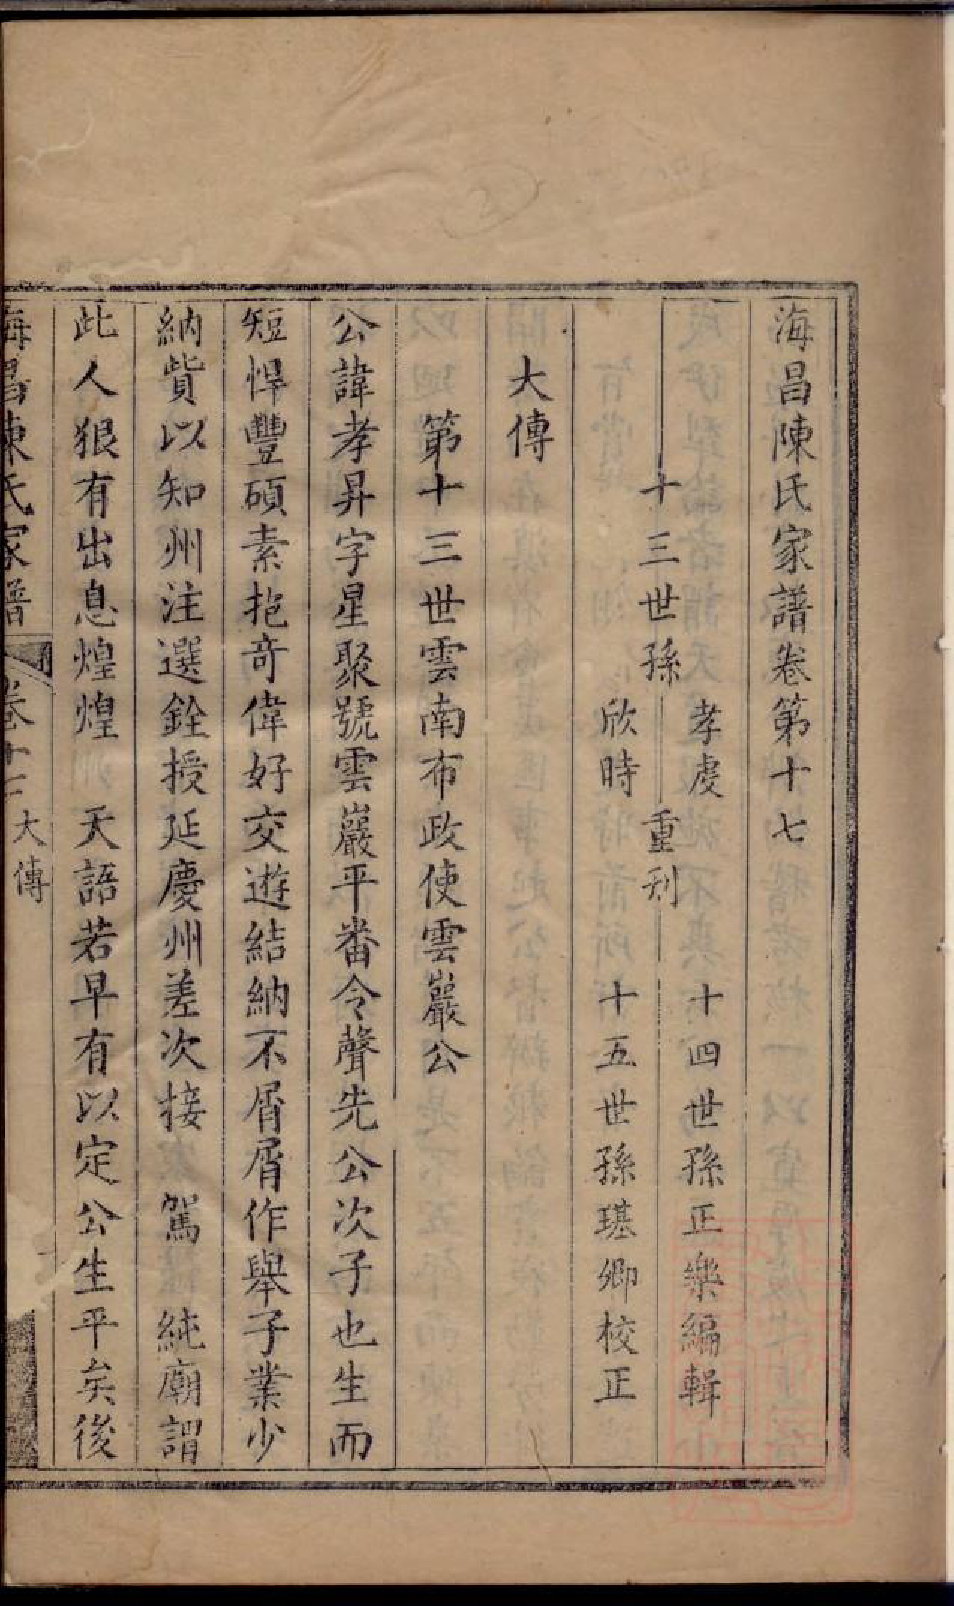 海昌陳氏家譜卷第十七
十三世孫 孝虔 欣時 重刋 十四世孫正樂編輯
十五世孫璂卿校正
大傳
第十三世雲南布政使雲巖公
公諱孝昇字星聚號雲巖平番令聲先公次子也生而
短悍豐碩素抱奇偉好交遊結納不屑屑作舉子業少
納貲以知州注選銓授延慶州差次接 駕 純廟謂
此人狠有出息煌煌 天語若早有以定公生平矣後
海昌陳氏家譜 卷十七 大傳